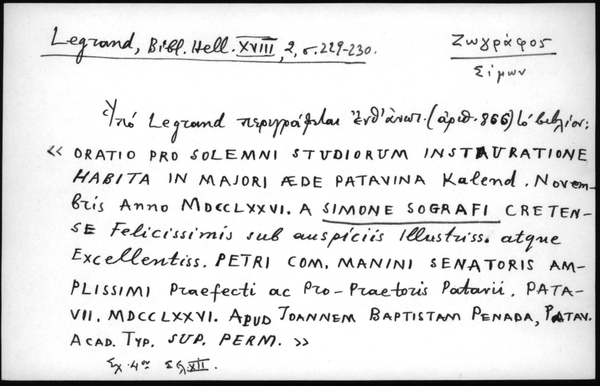 Legrand, Bibl. Hell. XVIII, 2, σ. 229-230.
Ζωγράφος
Σίμων
Ὑπό Legrand περιγράφεται ἐνθ' ἀνωτ. (ἀριθ. 866) τό βιβλίον:
« ORATIO PRO SOLEMNI STUDIORUM INSTAURATIONE
HABITA IN MAJORI ÆDE PATAVINA Kalend. Novem-
bris Anno MDCCLXXVI. A SIMONE SOGRAFI CRETEN-
SE Felicissimis sub auspiciis Illustriss. atque
Excellentiss. PETRI COM. MANINI SENATORIS AM-
PLISSIMI Praefecti ac Pro-Praetoris Patavii. PATA-
VII. MDCCLXXVI. APUD JOANNEM BAPTISTAM PENADA, PATAV.
ACAD. TYP. SUP. PERM. »
Σχ. 4ον Σελ. XII.